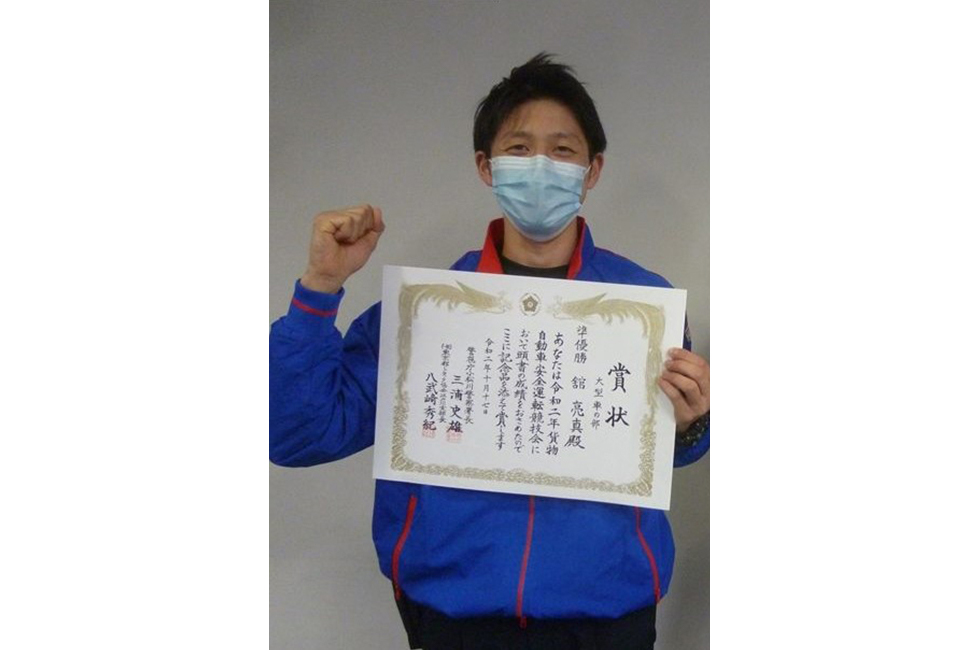 賞状
大型車の部
準優勝 舘 亮真殿
あなたは令和二年貨物
自動車安全運転競技会に
おいて頭書の成績をおさめたので
ここに記念品を添えて賞します
令和二年十月十七日
警視庁小松川警察署長
三浦史雄
八武崎秀紀